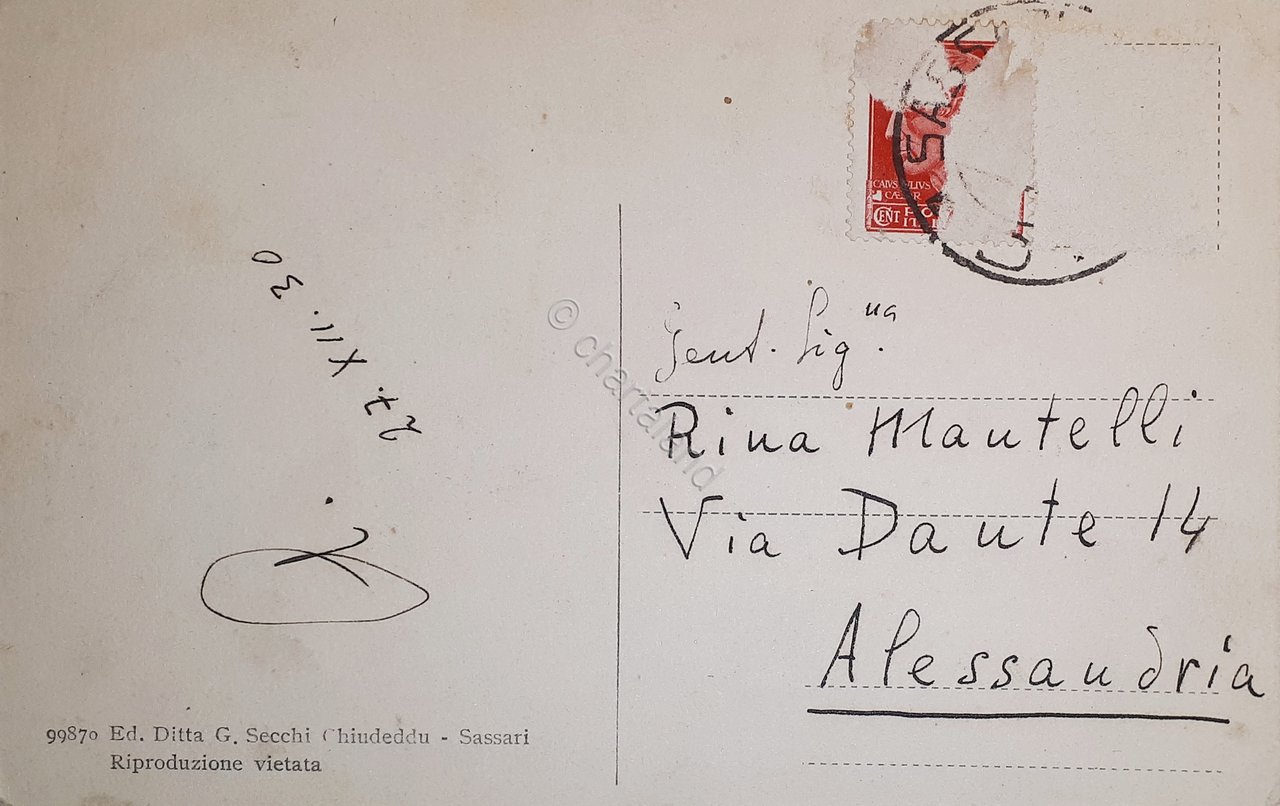 27.XII.30
99870 Ed. Ditta G. Secchi Chiudeddu - Sassari
Riproduzione vietata
SASS
CAIVS IVLIVS
CÆSAR
CENT
© chartaland
Gent. Sig.na
Rina Mantelli
Via Dante 14
Alessandria